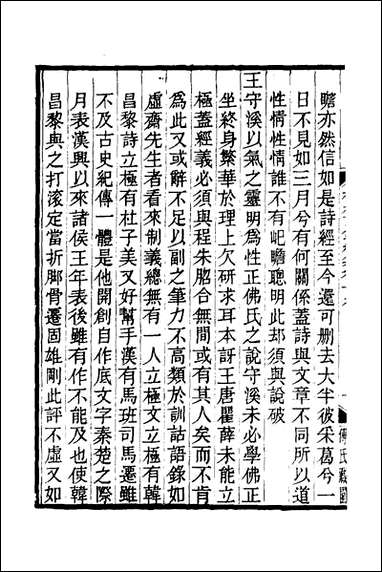 瞻亦然信如是詩經至今還可刪去大半彼采葛兮一
日不見如三月兮有何關係蓋詩與文章不同所以道
性情性情誰不有屺瞻聰明此却須與說破
王守溪以氣之靈明為性正佛氏之說守溪未必學佛正
坐終身繁華於理上欠研求耳本訝王唐瞿薛未能立
極蓋經義必須與程朱脗合無間或有其人矣而不肯
為此又或解不足以副之筆力不高類於訓詁語錄如
虛齋先生者看來制義總無有一人立極文立極有韓
昌黎詩立極有杜子美又好幫手漢有馬班司馬遷雖
不及古史紀傳一體是他開創自作底文字秦楚之際
月表漢興以來諸侯王年表後雖有作不能及也使韓
昌黎與之打滾定當折脚骨遷固雄剛此評不虛又如